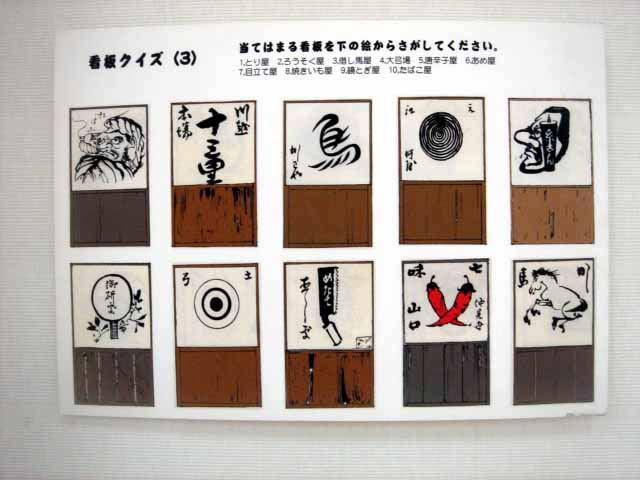 看板クイズ（3）
当てはまる看板を下の絵からさがしてください。
1,とり屋　2,ろうそく屋　3,借し馬屋　4,大弓場　5,唐辛子屋　6,あめ屋
7,目立て屋　8,焼きいも屋　9,鏡とぎ屋　10,たばこ屋
川越
十三里
本場
馬
御研堂
土
弓
めたて
七
味
山口
馬